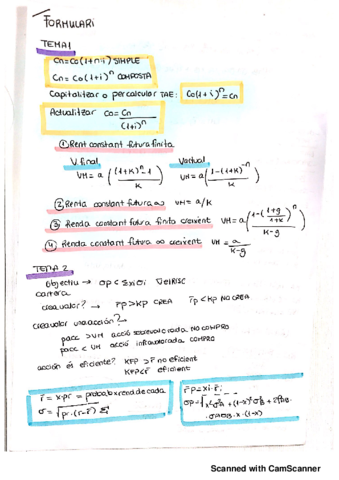 FORMULARI
TEMA 1
Cn=Co(1+n·i) SIMPLE
Cn=Co(1+i)^n COMPOSTA
Capitalitzar o per calcular TAE: Co(1+i)^n=Cn
Actualitzar Co=Cn/(1+i)^n
① Rent constant futura finita
V.final V.actual
VH=a((1+K)^n-1/K) VH=a(1-(1+K)^-n/K)
② Renta constant futura ∞ VH=a/K
③ Renda constant futura finita creixent VH=a(1-(1+g/1+K)^n/K-g)
④ Renda constant futura ∞ creixent VH=a/K-g
TEMA 2
Objectiu → σp < Σxiσi del RISC
cartera
crea valor? → r̄p>Kp CREA r̄p<Kp NO CREA
crea valor una acció?
pacc >VH acció sobrevalorada. NO COMPRO
pacc < VH acció infravalorada. COMPRO
acción és eficiente? Kep >r̄ no eficient
Kep<r̄ eficient
r̄ = x·pr = probab x rend de cada
r̄p=xi·r̄i
Scanned with CamScanner